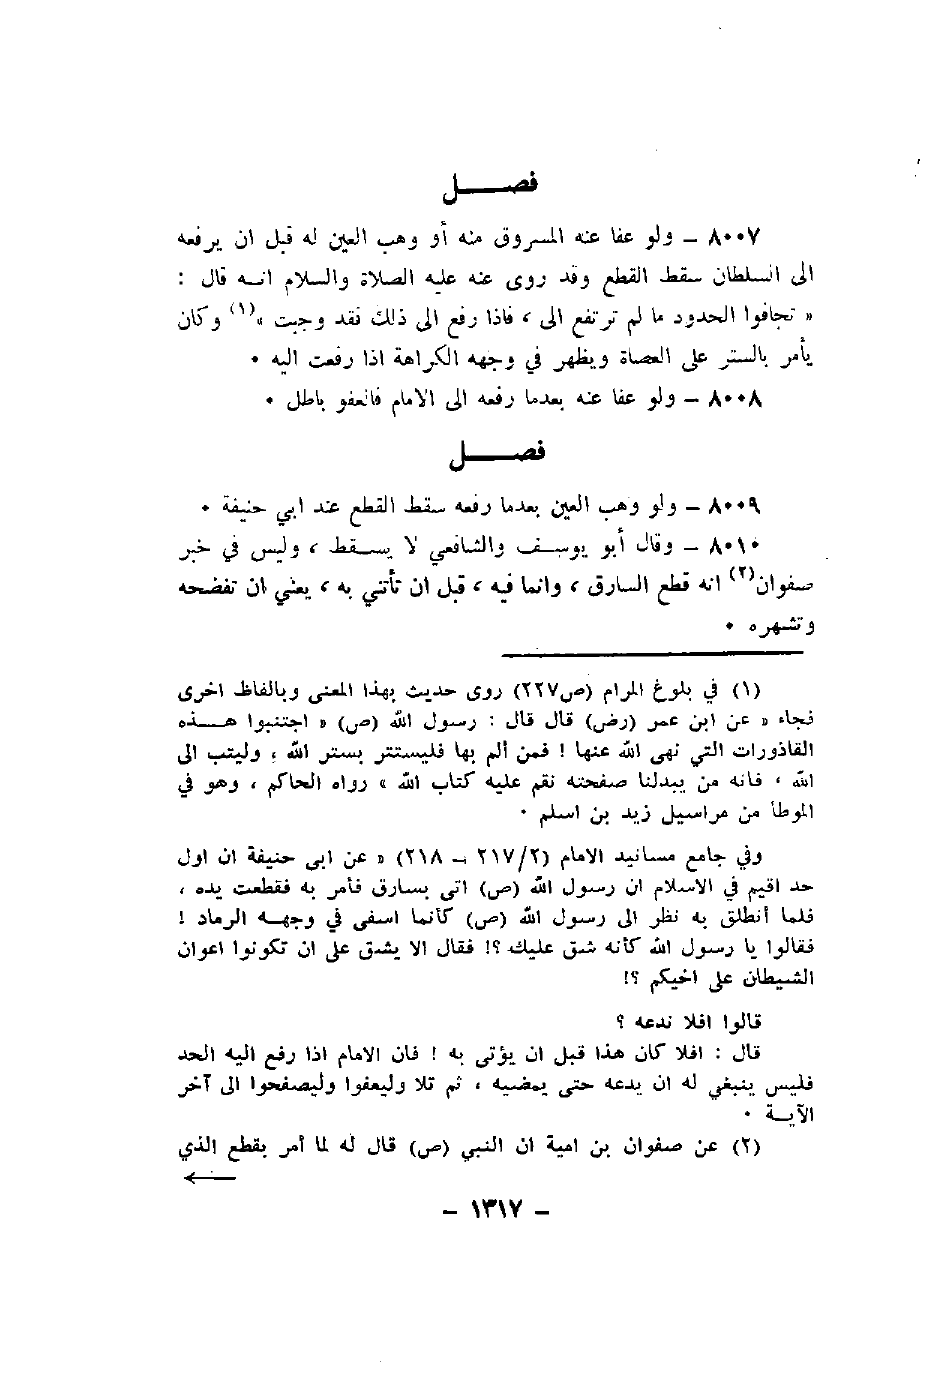 فصــــل
٨٠٠٧ – ولو عفا عنه المسروق منه أو وهب العين له قبل ان يرفعه
الى السلطان سقط القطع وقد روى عنه عليه الصلاة والسلام انــه قال :
« تجافوا الحدود ما لم ترتفع الى ، فاذا رفع الى ذلك نقد وجبت »(١) وكان
يأمر بالستر على العصاة ويظهر في وجهه الكراهة اذا رفعت اليه ٠
٨٠٠٨ – ولو عفا عنه بعدما رفعه الى الامام فالعفو باطل ٠
فصــــل
٨٠٠٩ – ولو وهب العين بعدما رفعه سقط القطع عند ابي حنيفة ٠
٨٠١٠ – وقال أبو يوســف والشافعي لا يســقط ، وليس في خبر
صفوان(٢) انه قطع السارق ، وانما فيه ، قبل ان تأتني به ، يعني ان تفضحه
وتشهره ٠
(١) في بلوغ المرام (ص٢٢٧) روى حديث بهذا المعنى وبالفاظ اخرى
فجاء « عن ابن عمر (رض) قال قال : رسول الله (ص) « اجتنبوا هــذه
القاذورات التي نهى الله عنها ! فمن ألم بها فليستتر بستر الله ، وليتب الى
الله ، فانه من يبدلنا صفحته نقم عليه كتاب الله » رواه الحاكم ، وهو في
الموطأ من مراسيل زيد بن اسلم ٠
وفي جامع مسانيد الامام (٢/٢١٧ – ٢١٨) « عن ابى حنيفة ان اول
حد اقيم في الاسلام ان رسول الله (ص) اتى بسارق فأمر به فقطعت يده ،
فلما أنطلق به نظر الى رسول الله (ص) كأنما اسفى في وجهــه الرماد !
فقالوا يا رسول الله كأنه شق عليك ؟! فقال الا يشق على ان تكونوا اعوان
الشيطان على اخيكم ؟!
قالوا افلا ندعه ؟
قال : افلا كان هذا قبل ان يؤتى به ! فان الامام اذا رفع اليه الحد
فليس ينبغي له ان يدعه حتى يمضيه ، ثم تلا وليعفوا وليصفحوا الى آخر
الآيــة ٠
(٢) عن صفوان بن امية ان النبي (ص) قال له لما أمر بقطع الذي
– ١٣١٧ –